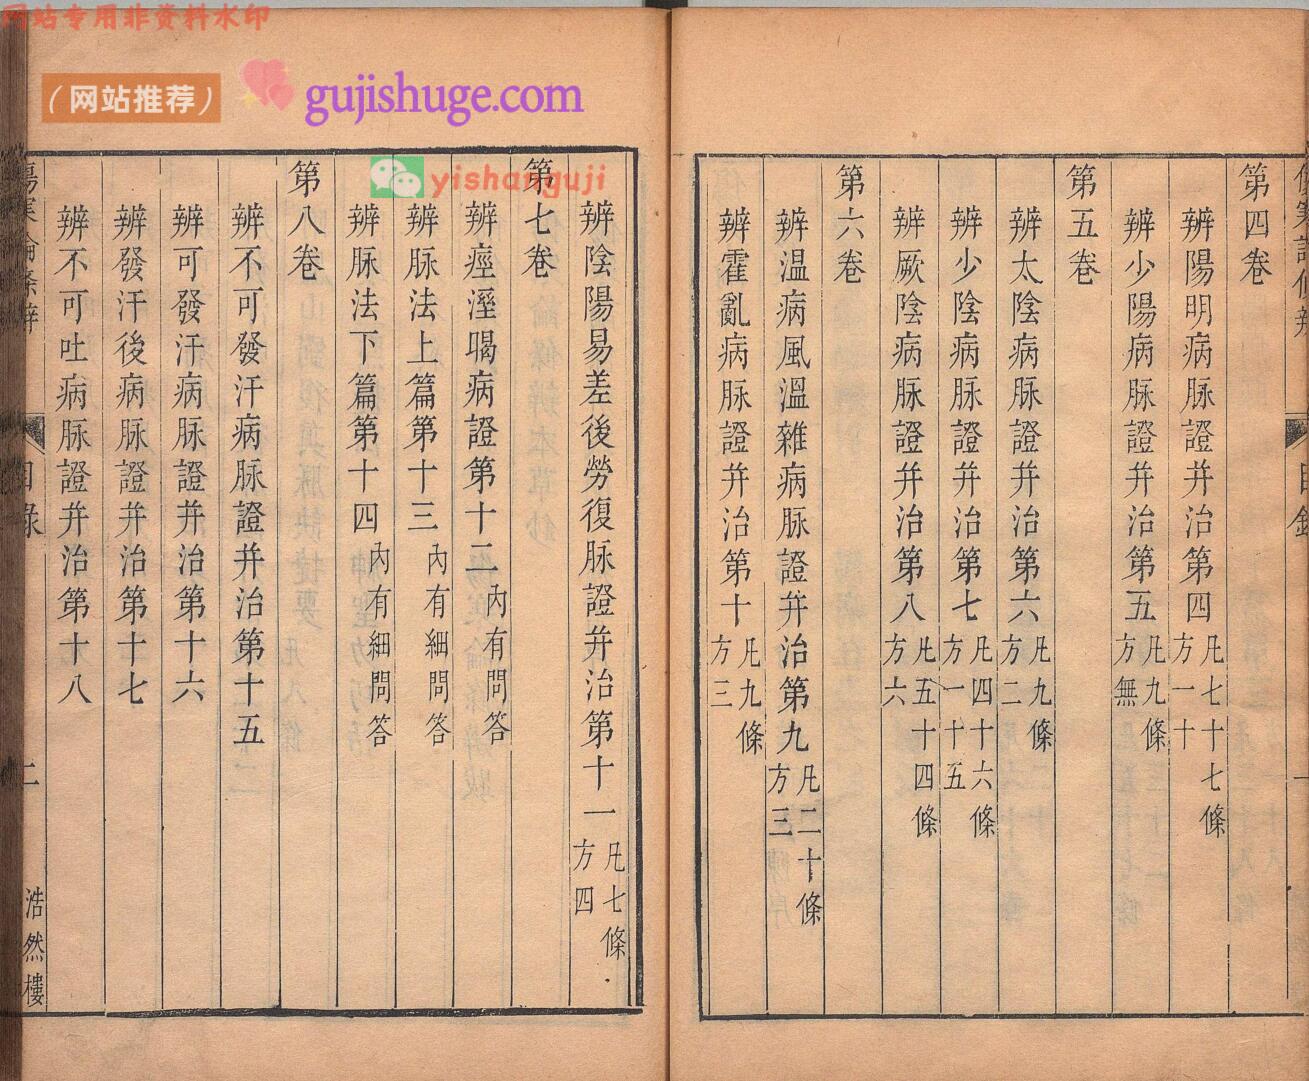 网站专用非资料水印
（网站推荐）
gujishuge.com
yishanguji
第四卷
辨陽明病脉證并治第四 凡七十七條 方一十
辨少陽病脉證并治第五 凡九條 方無
第五卷
辨太陰病脉證并治第六 凡九條 方二
辨少陰病脉證并治第七 凡四十六條 方一十五
辨厥陰病脉證并治第八 凡五十四條 方六
第六卷
辨温病風溫雜病脉證并治第九 凡二十條 方三
辨霍亂病脉證并治第十 凡九條 方三
辨陰陽易差後勞復脉證并治第十一 凡七條 方四
第七卷
辨痙溼暍病證第十二 內有問答
辨脉法上篇第十三 內有細問答
辨脉法下篇第十四 內有細問答
第八卷
辨不可發汗病脉證并治第十五
辨可發汗病脉證并治第十六
辨發汗後病脉證并治第十七
辨不可吐病脉證并治第十八
傷寒論條辨 目錄 二 浩然樓